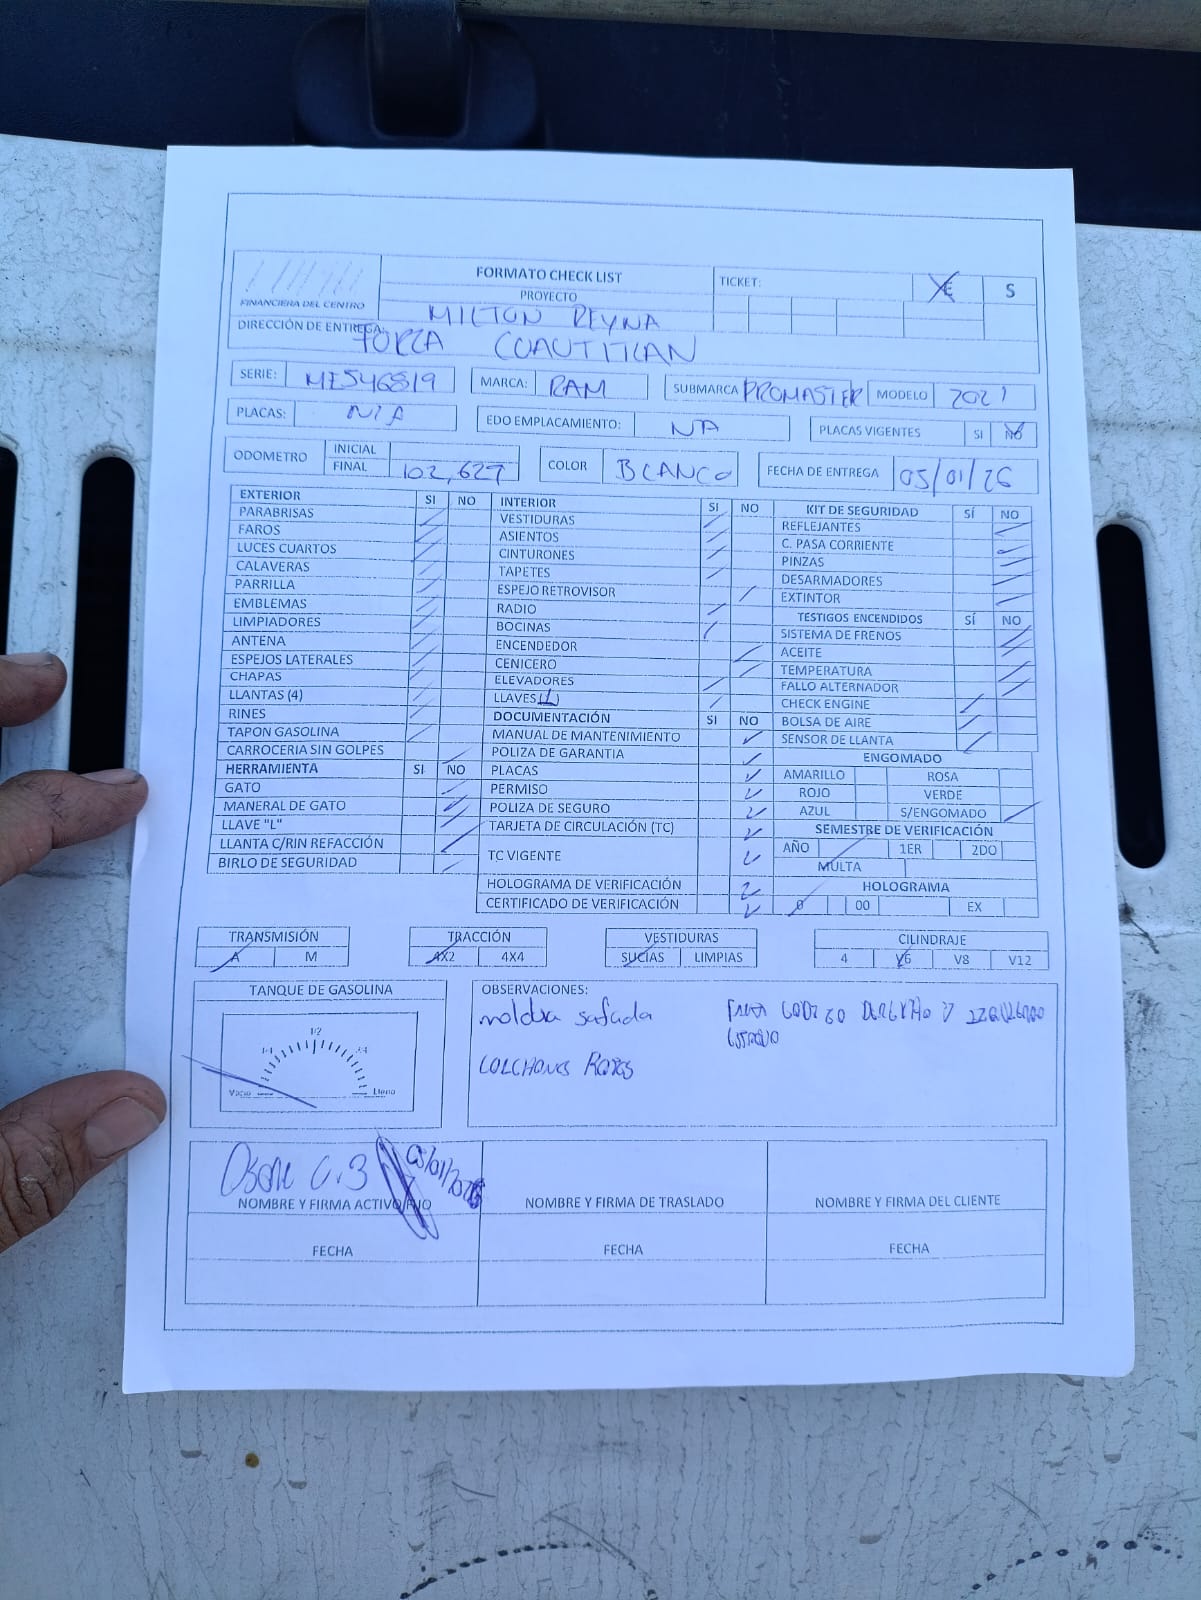 FORMATO CHECK LIST
TICKET:
E S
FINANCIERA DEL CENTRO
PROYECTO
MILTON REYNA
DIRECCIÓN DE ENTREGA:
FORZA CUAUTITLAN
SERIE: ME546819 MARCA: RAM SUBMARCA PROMASTER MODELO 2021
PLACAS: N/A EDO EMPLACAMIENTO: NA PLACAS VIGENTES SI NO
ODOMETRO INICIAL
FINAL 102,627 COLOR BLANCO FECHA DE ENTREGA 05/01/26
EXTERIOR SI NO INTERIOR SI NO KIT DE SEGURIDAD SÍ NO
PARABRISAS VESTIDURAS REFLEJANTES
FAROS ASIENTOS C. PASA CORRIENTE
LUCES CUARTOS CINTURONES PINZAS
CALAVERAS TAPETES DESARMADORES
PARRILLA ESPEJO RETROVISOR EXTINTOR
EMBLEMAS RADIO TESTIGOS ENCENDIDOS SÍ NO
LIMPIADORES BOCINAS SISTEMA DE FRENOS
ANTENA ENCENDEDOR ACEITE
ESPEJOS LATERALES CENICERO TEMPERATURA
CHAPAS ELEVADORES FALLO ALTERNADOR
LLANTAS (4) LLAVES 1 CHECK ENGINE
RINES DOCUMENTACIÓN SI NO BOLSA DE AIRE
TAPON GASOLINA MANUAL DE MANTENIMIENTO SENSOR DE LLANTA
CARROCERIA SIN GOLPES POLIZA DE GARANTIA ENGOMADO
HERRAMIENTA SI NO PLACAS AMARILLO ROSA
GATO PERMISO ROJO VERDE
MANERAL DE GATO POLIZA DE SEGURO AZUL S/ENGOMADO
LLAVE "L" TARJETA DE CIRCULACIÓN (TC) SEMESTRE DE VERIFICACIÓN
LLANTA C/RIN REFACCIÓN TC VIGENTE AÑO 1ER 2DO
BIRLO DE SEGURIDAD MULTA
HOLOGRAMA DE VERIFICACIÓN HOLOGRAMA
CERTIFICADO DE VERIFICACIÓN 0 00 EX
TRANSMISIÓN TRACCIÓN VESTIDURAS CILINDRAJE
A M 4X2 4X4 SUCIAS LIMPIAS 4 V6 V8 V12
TANQUE DE GASOLINA
1/4 1/2 3/4
Vacio Lleno
OBSERVACIONES:
moldura safada
COLCHONES ROTOS
05/01/2026
NOMBRE Y FIRMA ACTIVO FIJO NOMBRE Y FIRMA DE TRASLADO NOMBRE Y FIRMA DEL CLIENTE
FECHA FECHA FECHA